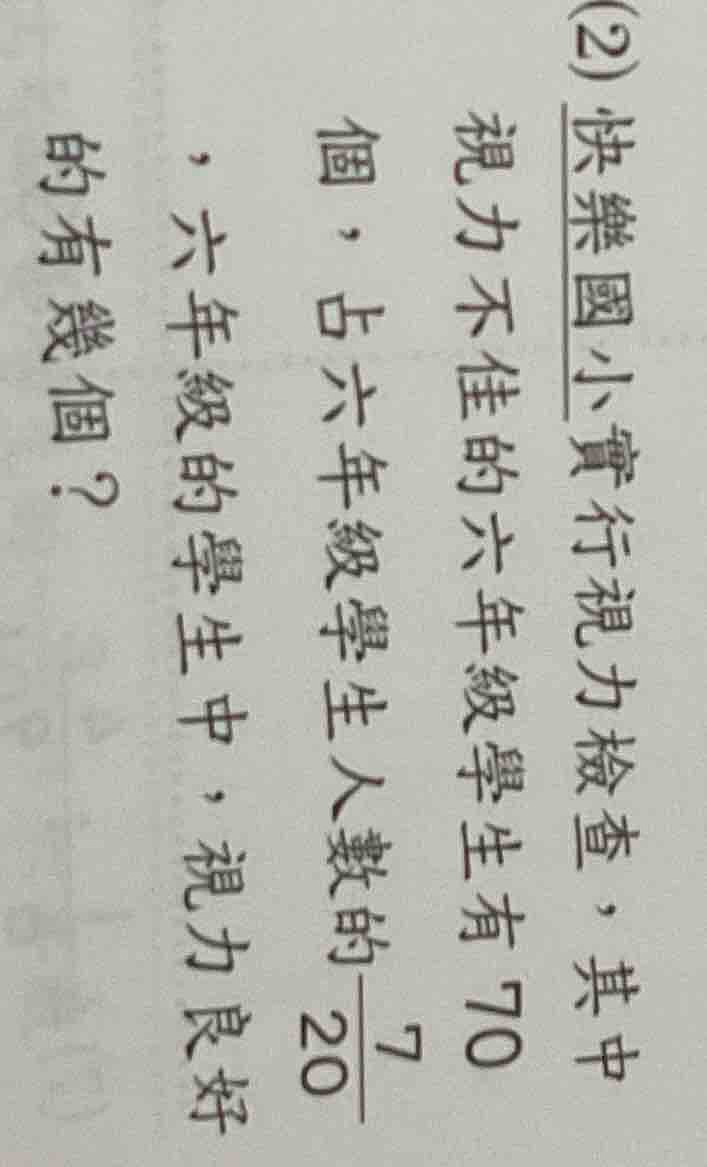 (2) 快樂國小實行視力檢查，其中
視力不佳的六年級學生有 70
個，占六年級學生人數的 7/20
，六年級的學生中，視力良好
的有幾個？